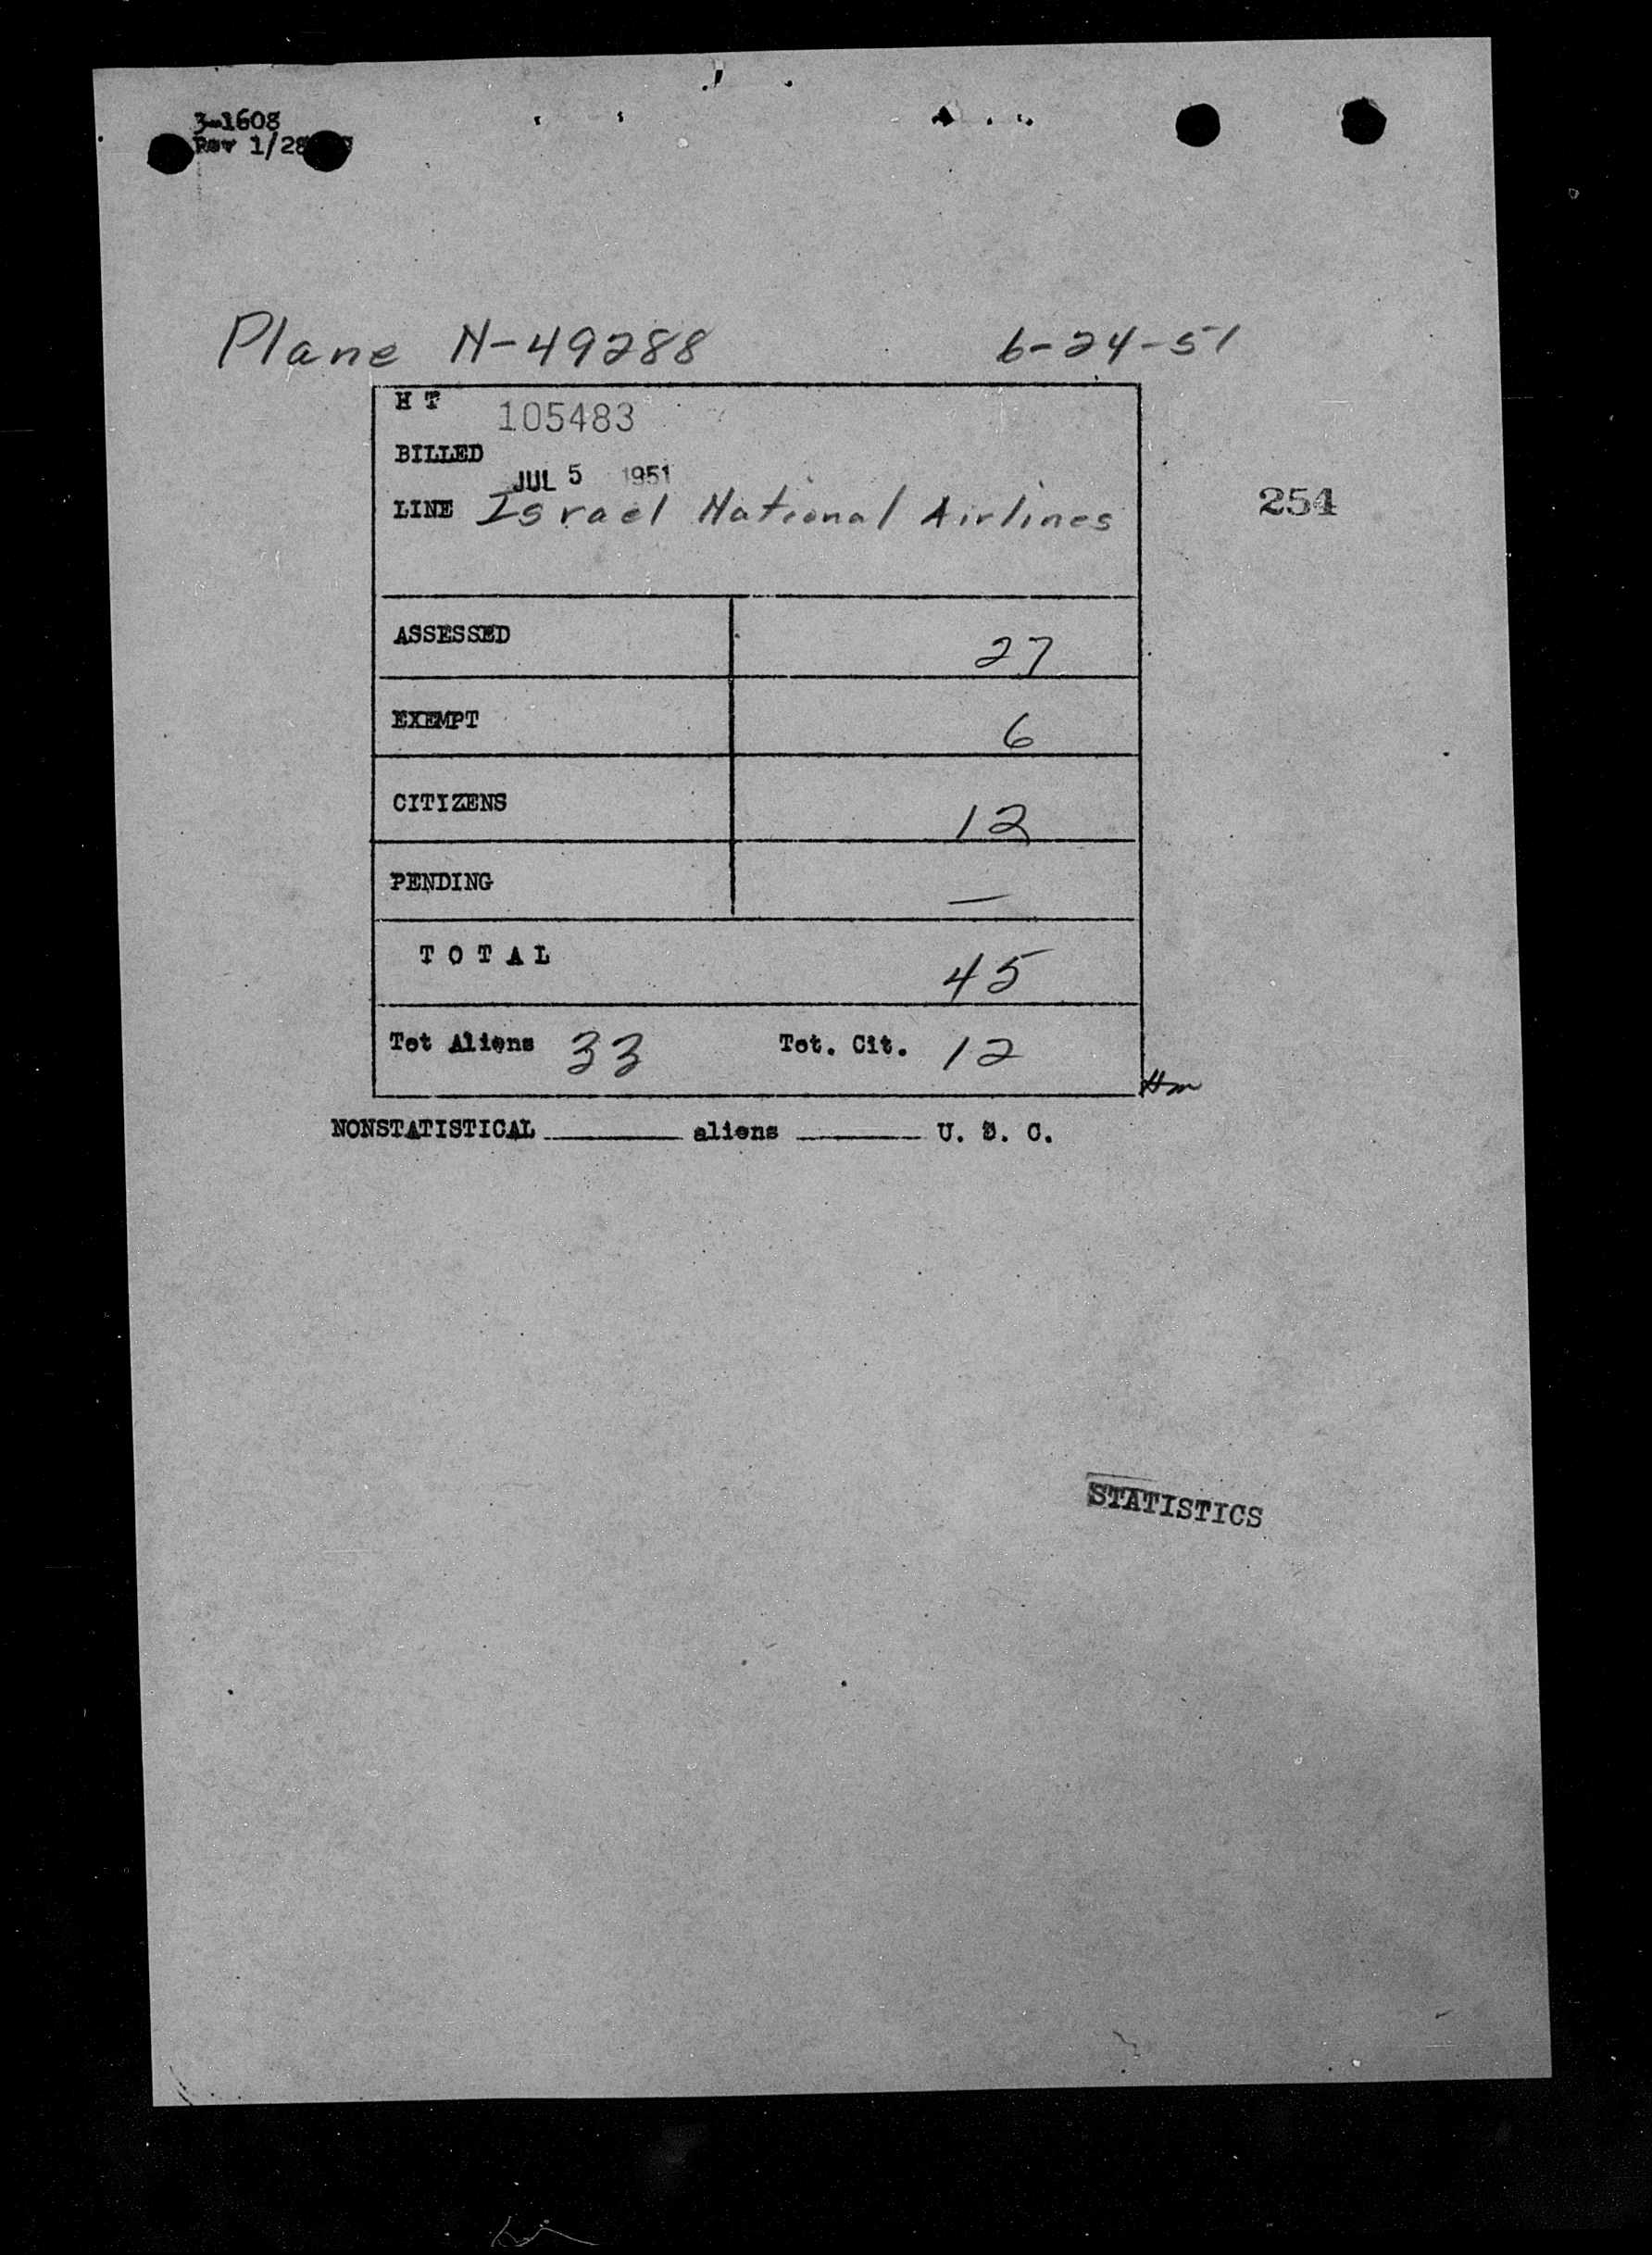 3-1608
Rev 1/28
Plane N-49288 6-24-51
H T 105483
BILLED
JUL 5 1951
LINE Israel National Airlines
254
ASSESSED 27
EXEMPT 6
CITIZENS 12
PENDING —
T O T A L 45
Tot Aliens 33 Tot. Cit. 12
Hm
NONSTATISTICAL ______ aliens ______ U. S. C.
STATISTICS